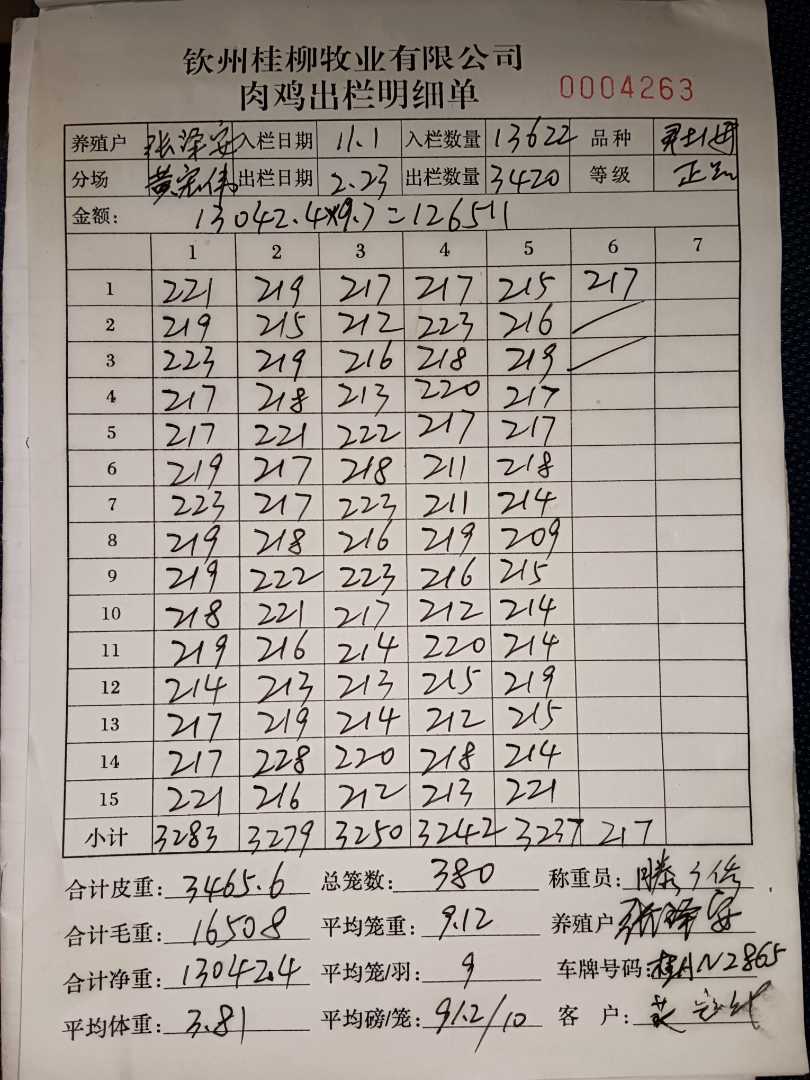 钦州桂柳牧业有限公司
肉鸡出栏明细单 0004263
养殖户 张泽安 入栏日期 11.1 入栏数量 13622 品种
分场 黄宏伟 出栏日期 2.23 出栏数量 3420 等级
金额: 13042.4×9.7=126511
1 2 3 4 5 6 7
1 221 219 217 217 215 217
2 219 215 212 223 216
3 223 219 216 218 219
4 217 218 213 220 217
5 217 221 222 217 217
6 219 217 218 211 218
7 223 217 223 211 214
8 219 218 216 219 209
9 219 222 223 216 215
10 218 221 217 212 214
11 219 216 214 220 214
12 214 213 213 215 219
13 217 219 214 212 215
14 217 228 220 218 214
15 221 216 212 213 221
小计 3283 3279 3250 3242 3237 217
合计皮重: 3465.6 总笼数: 380 称重员:
合计毛重: 16508 平均笼重: 9.12 养殖户 张泽安
合计净重: 13042.4 平均笼/羽: 9 车牌号码: 桂AN2865
平均体重: 3.81 平均磅/笼: 91.2/10 客 户: